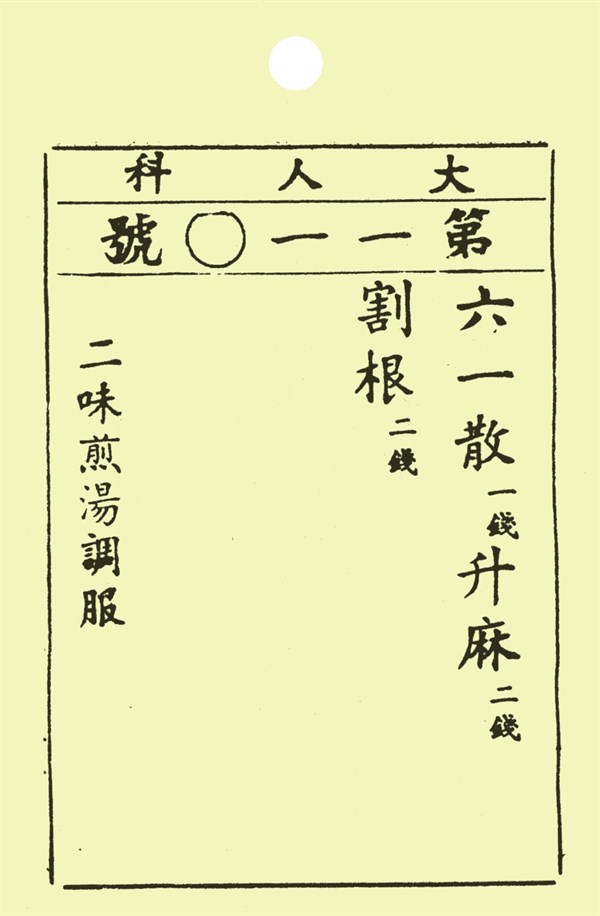 大人科
第一一〇號
六一散一錢升麻二錢
割根二錢
二味煎湯調服